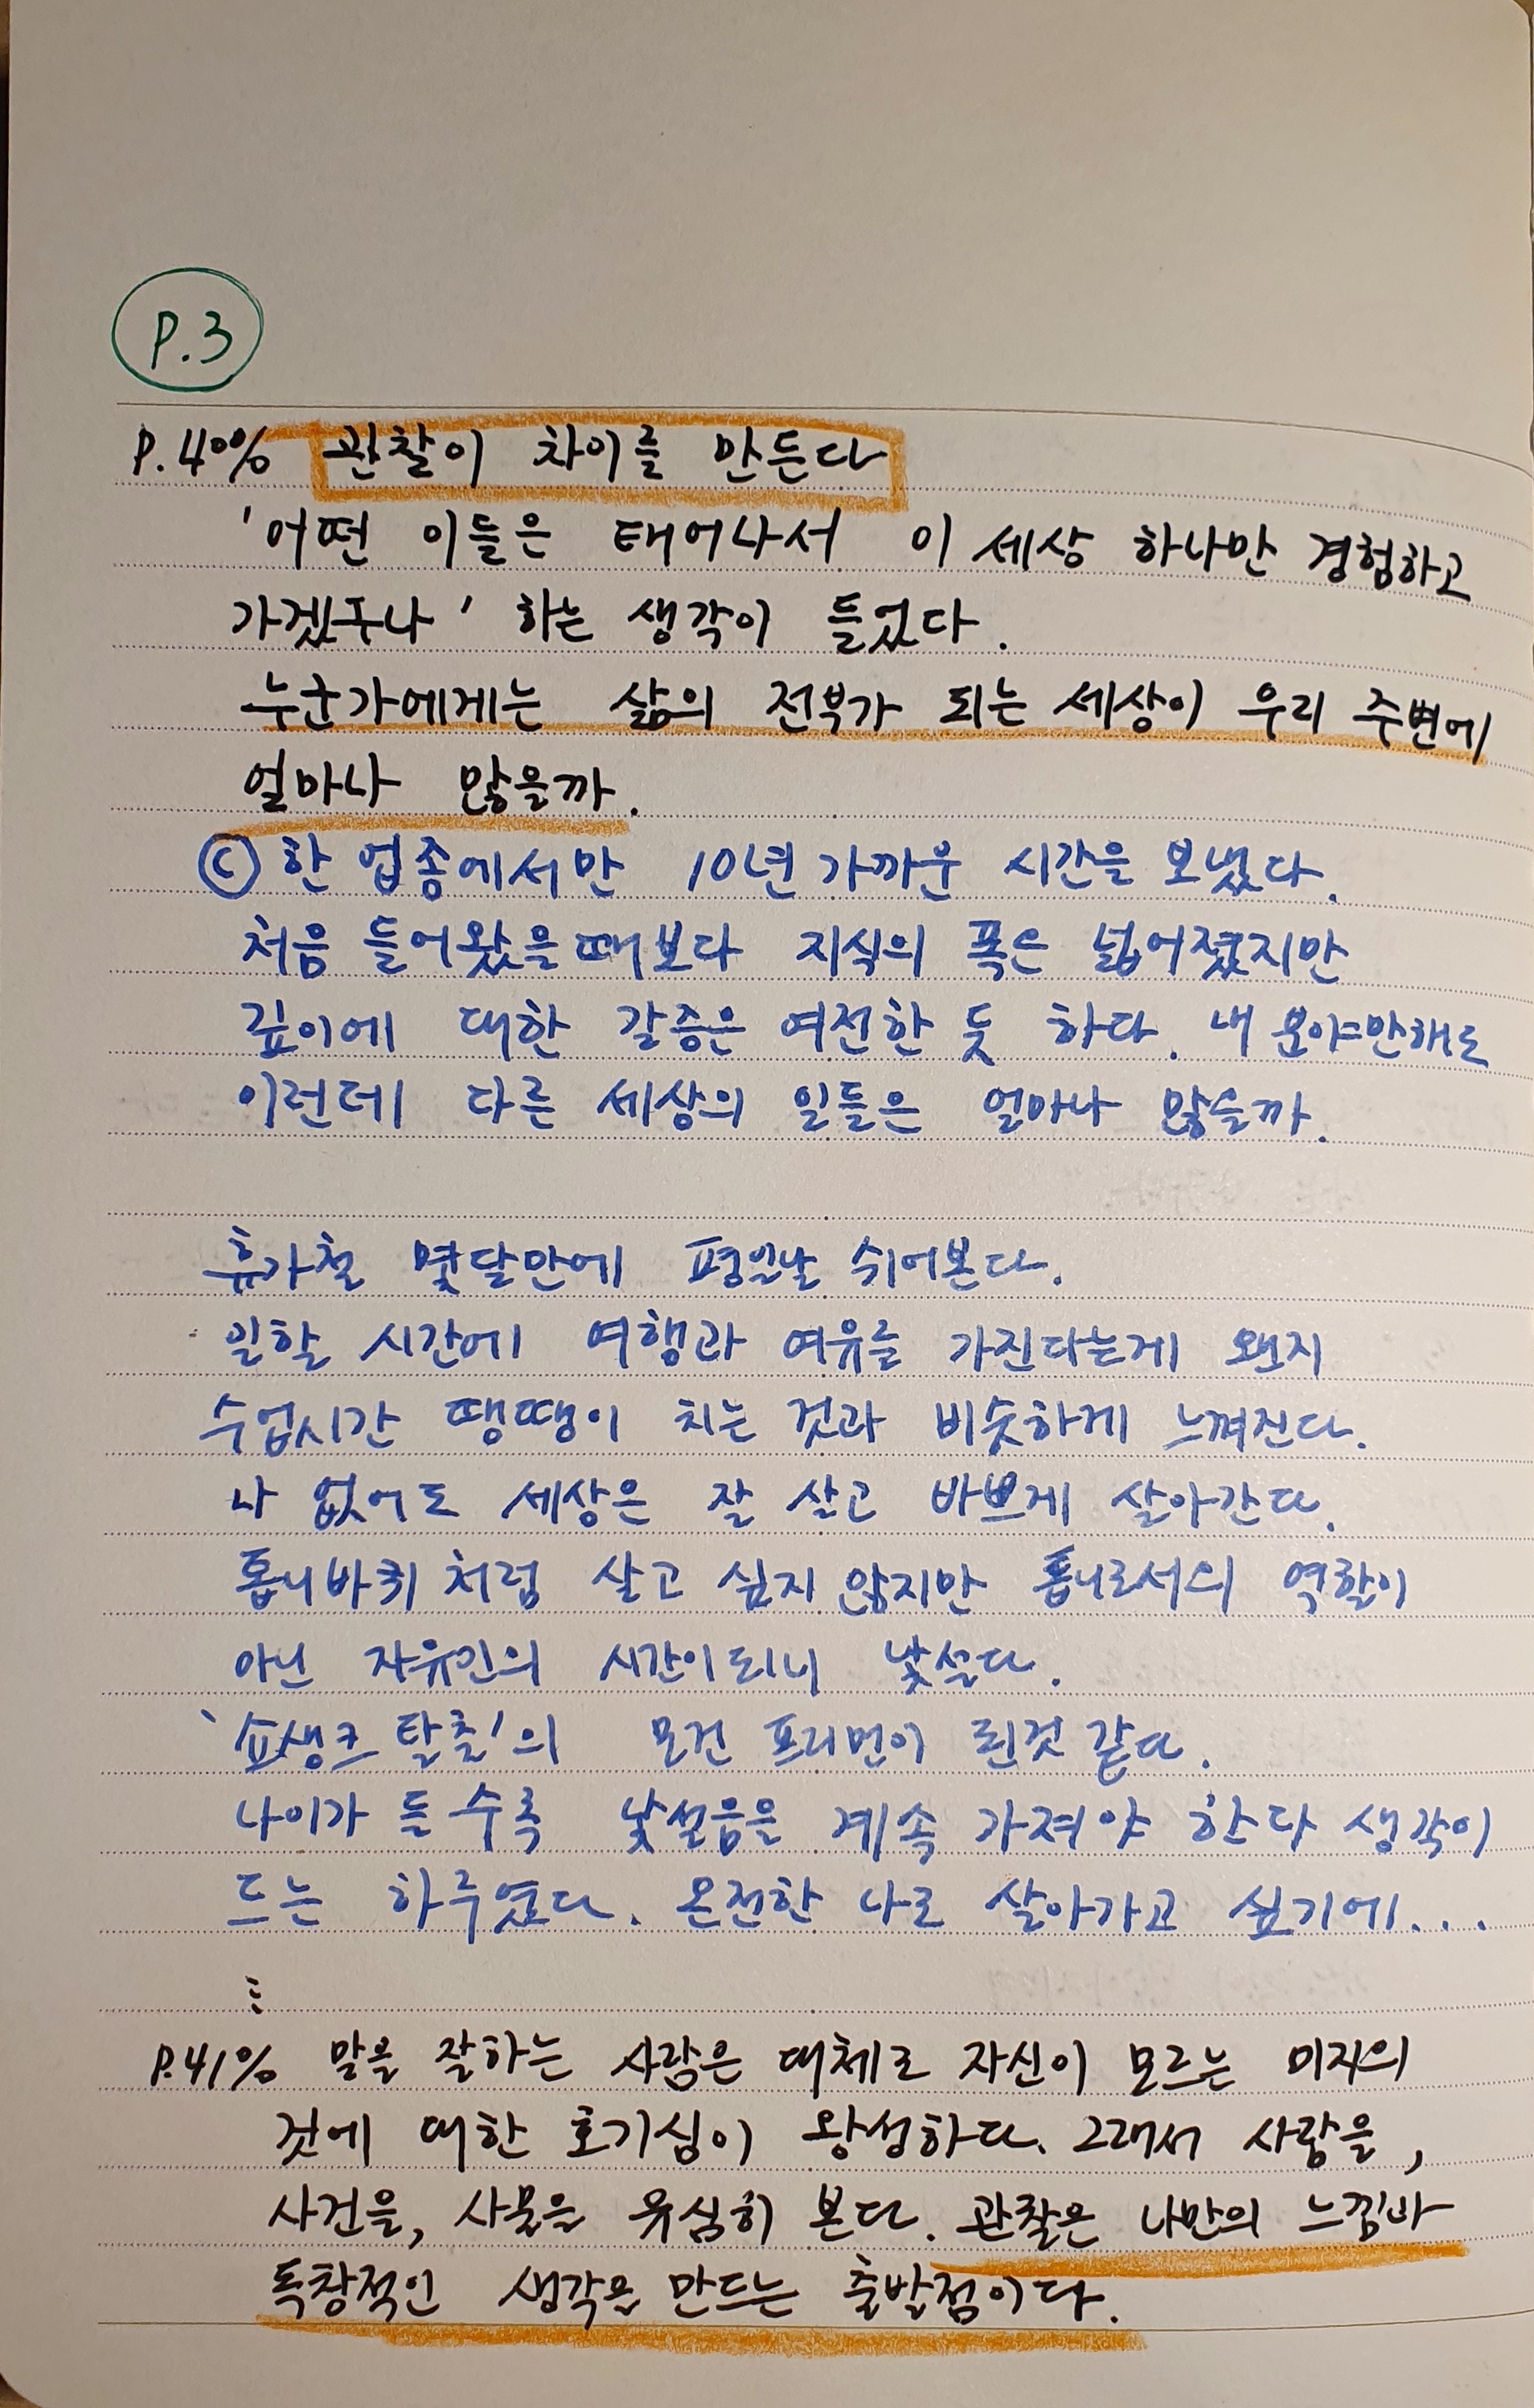 P.3
P.40% 관찰이 차이를 만든다
'어떤 이들은 태어나서 이 세상 하나만 경험하고
가겠구나' 하는 생각이 들었다.
누군가에게는 삶의 전부가 되는 세상이 우리 주변에
얼마나 많을까.
ⓒ 한 업종에서만 10년 가까운 시간을 보냈다.
처음 들어왔을때보다 지식의 폭은 넓어졌지만
깊이에 대한 갈증은 여전한 듯 하다. 내 분야만해도
이런데 다른 세상의 일들은 얼마나 많을까.
휴가철 몇달만에 평일날 쉬어본다.
일할 시간에 여행과 여유를 가진다는게 왠지
수업시간 땡땡이 치는 것과 비슷하게 느껴진다.
나 없어도 세상은 잘 살고 바쁘게 살아간다.
톱니바퀴처럼 살고 싶지 않지만 톱니로서의 역할이
아닌 자유인의 시간이되니 낯설다.
'쇼생크 탈출'의 모건 프리먼이 된것 같다.
나이가 들수록 낯설음을 계속 가져야 한다 생각이
드는 하루였다. 온전한 나로 살아가고 싶기에...
⋮
P.41% 말을 잘하는 사람은 대체로 자신이 모르는 미지의
것에 대한 호기심이 왕성하다. 그래서 사람을,
사건을, 사물을 유심히 본다. 관찰은 나만의 느낌과
독창적인 생각을 만드는 출발점이다.